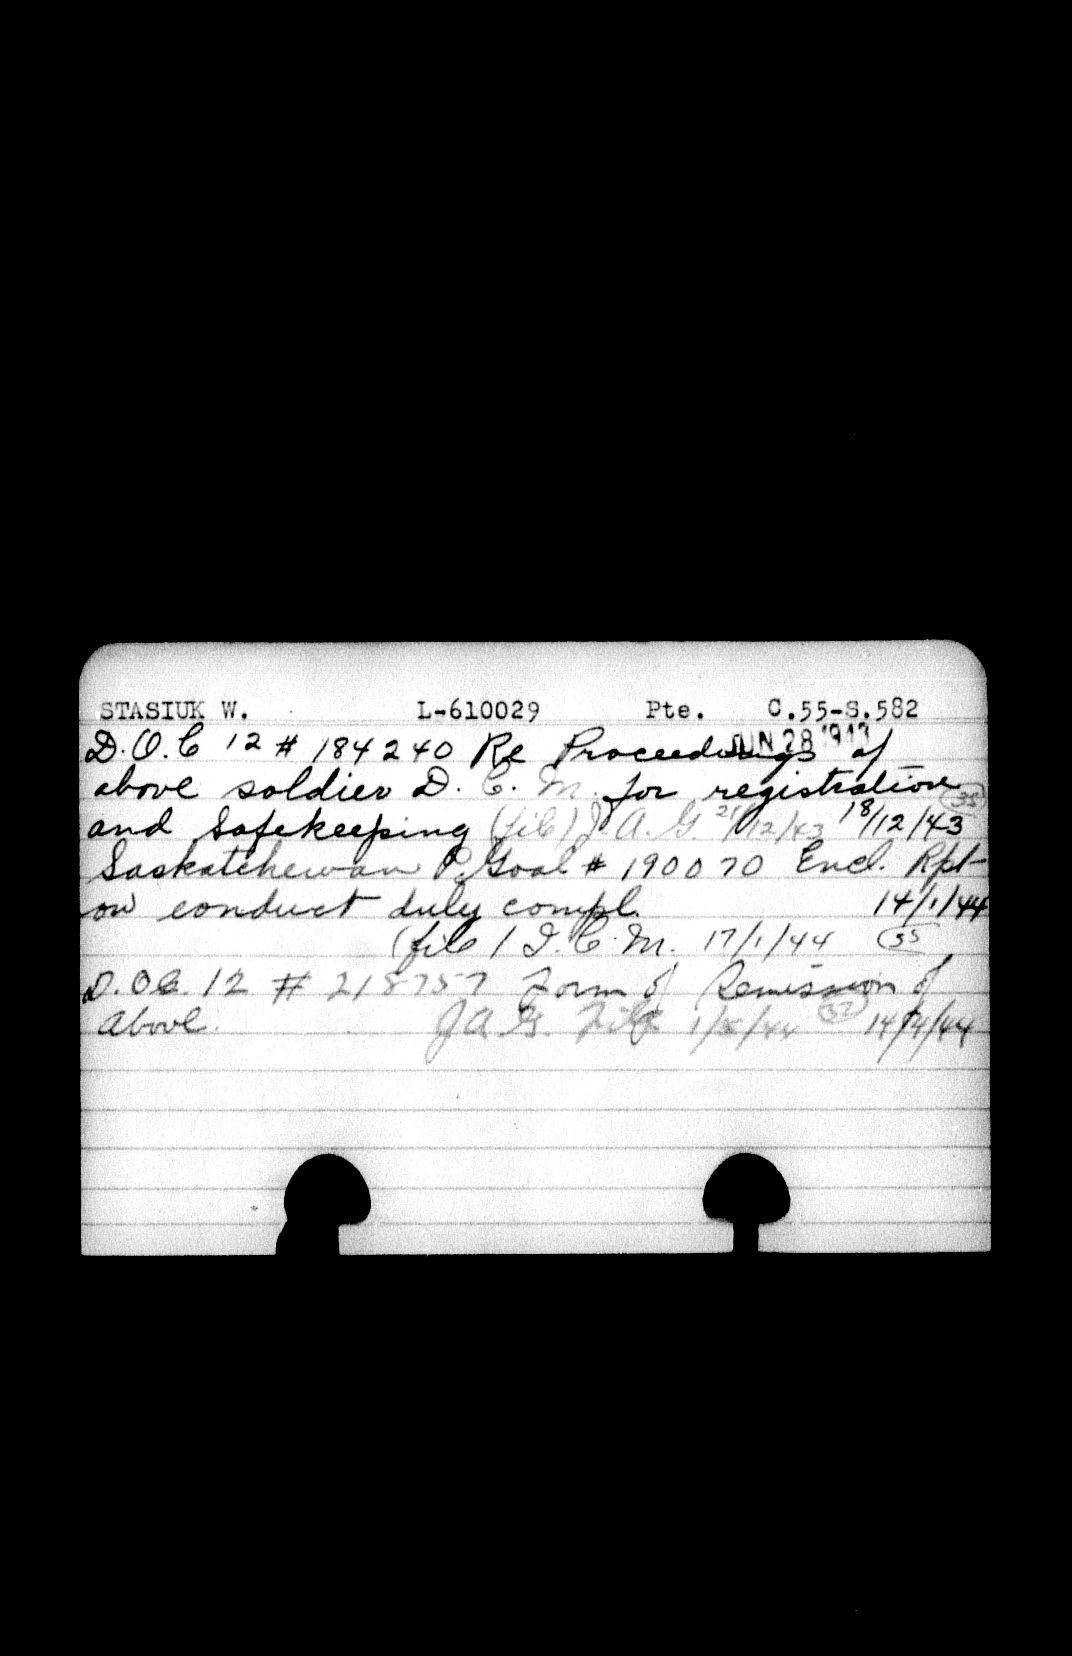 STASIUK W. L-610029 Pte. C.55-S.582
JUN 28 1943
D.O.C 12 # 184240 Re Proceedings of
above soldier D. C. M. for registration
and Safekeeping (file) J.A.G. 21/12/43 18/12/43 35
Saskatchewan P. Goal # 190070 Encl. Rpt
on conduct duly compl. 14/1/44
(file / D.C.M. 17/1/44 35
D.O.C. 12 # 218757 Form of Remission of
above. J A G. File 1/5/44 14/4/44